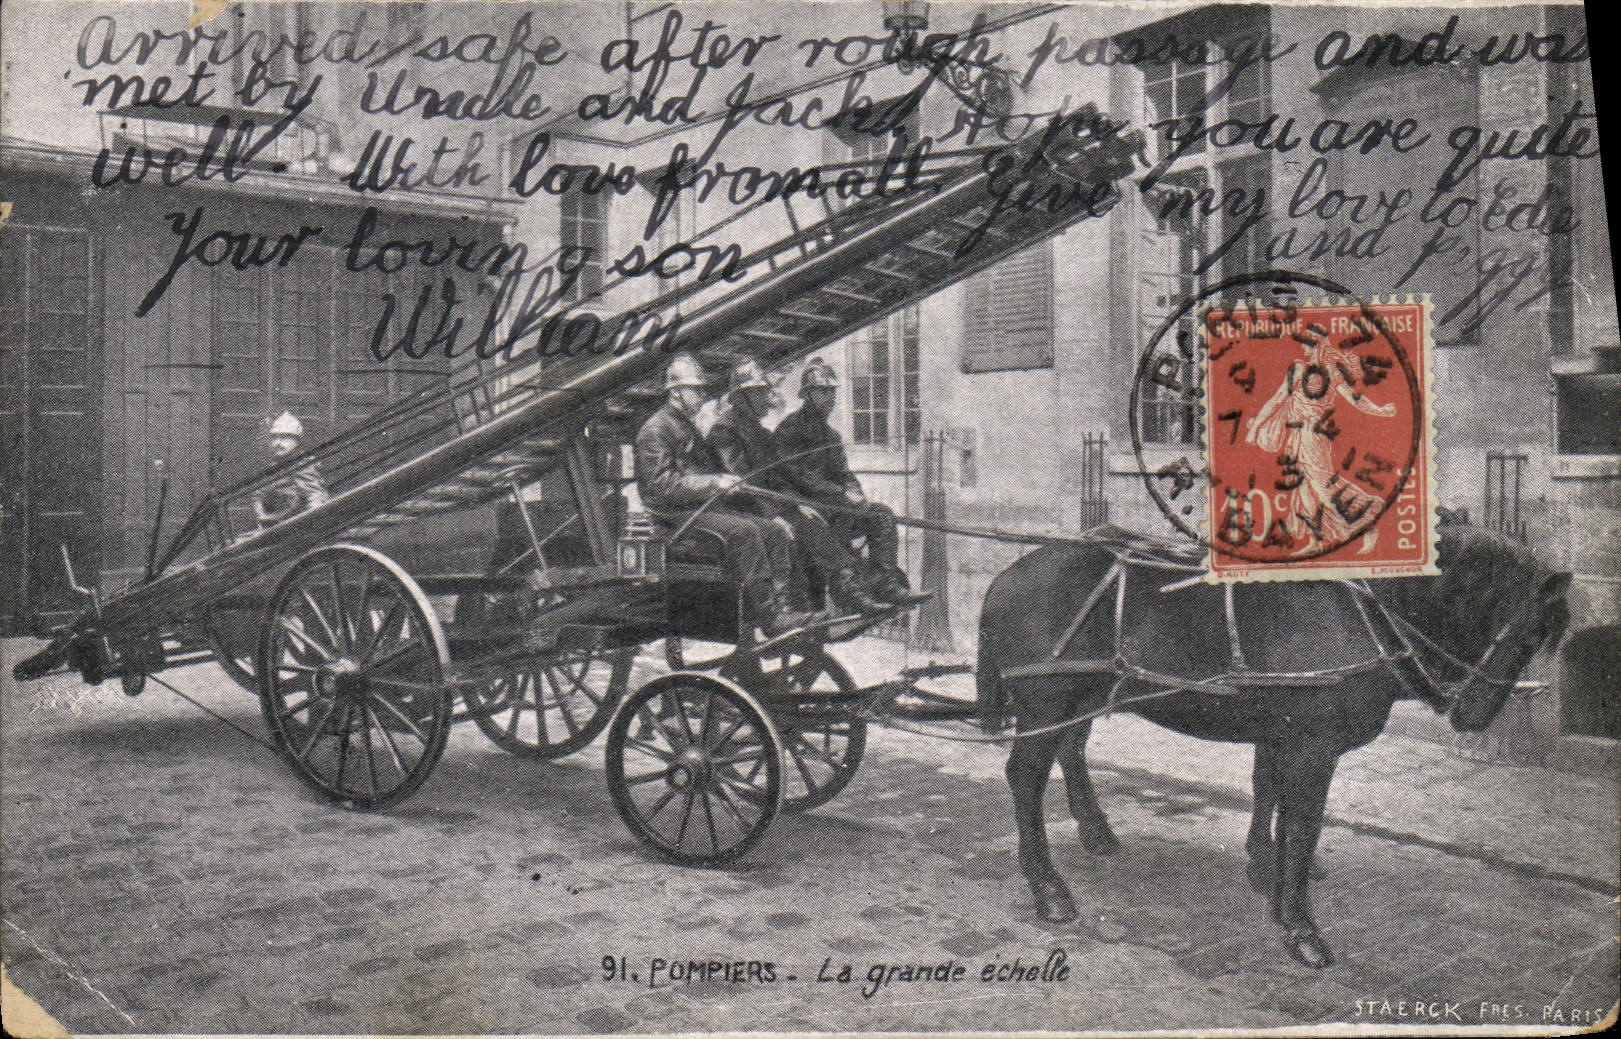 Arrived safe after rough passage and was
met by Uncle and Jack. Hope you are quite
well. With love from all. Give my love to Edie
and Peggy
Your loving son
William
REPUBLIQUE FRANÇAISE
10 c
POSTES
O. ROTY
E. MOUCHON
PARIS
7 - 4
BAYEN
91. POMPIERS - La grande échelle
STAERCK FRES. PARIS